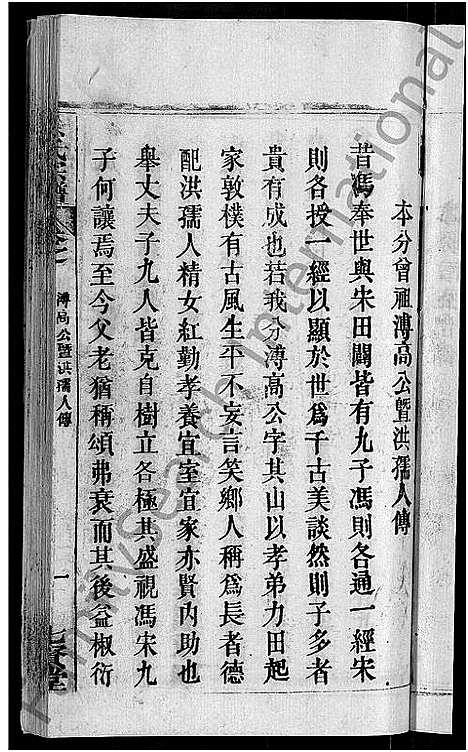 本分曾祖溥高公暨洪孺人傳
昔馮奉世與宋田闢皆有九子馮則各通一經宋
則各授一經以顯於世爲千古美談然則子多者
貴有成也若我分溥高公字其山以孝弟力田起
家敦樸有古風生平不妄言笑鄉人稱爲長者德
配洪孺人精女紅勤孝養宜室宜家亦賢內助也
舉丈夫子九人皆克自樹立各極其盛視馮宋九
子何讓焉至今父老猶稱頌弗衰而其後益椒衍
溥高公暨洪孺人傳
一
堂
familysearch international